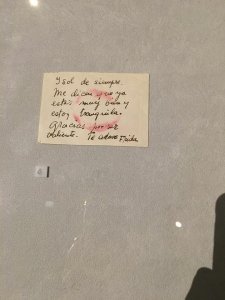 Sol de siempre.
Me dicen que ya
estás muy bien y
estoy tranquila.
Gracias por ser
valiente. Te adoro Frida